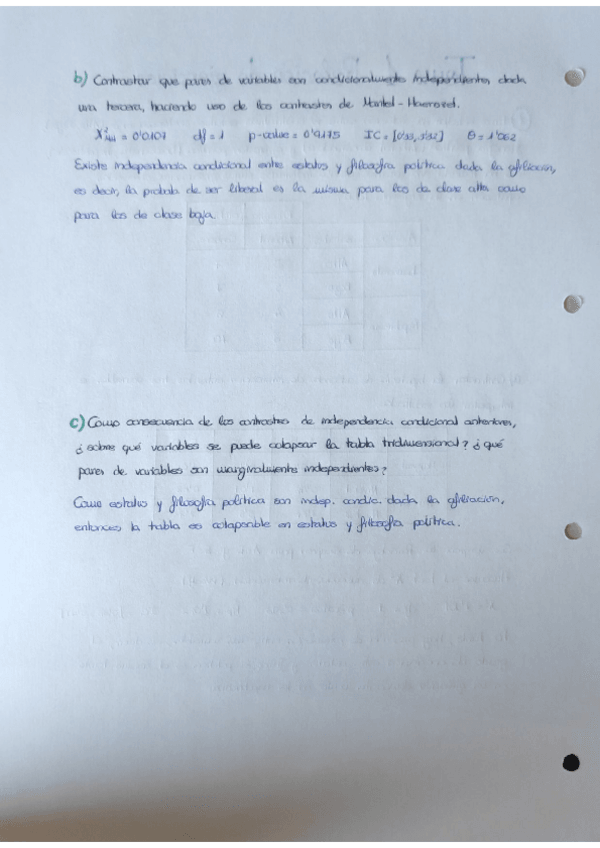 b) Contrastar que pares de variables son condicionalmente independientes, dada
una tercera, haciendo uso de los contrastes de Mantel-Haenszel.
X²MH = 0'0107 df = 1 p-value = 0'9175 IC = [0'55, 1'92] θ = 1'062
Existe independencia condicional entre estatus y filosofía política dada la afiliación,
es decir, la probab de ser liberal es la misma para los de clase alta como
para los de clase baja.
c) Como consecuencia de los contrastes de independencia condicional anteriores,
¿sobre qué variables se puede colapsar la tabla tridimensional? ¿qué
pares de variables son marginalmente independientes?
Como estatus y filosofía política son indep. condic. dada la afiliación,
entonces la tabla es colapsable en estatus y filosofía política.